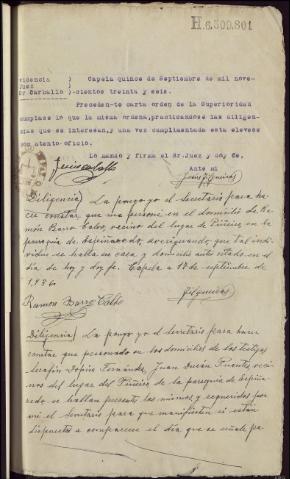 H.6.309.801
videncia ) Capela quince de Septiembre de mil nove-
Juez )
Sr Carballo ) -cientos treinta y seis.
Precedente carta orden de la Superioridad
cumplase lo que la misma ordena, practicandose las diligen-
cias que se interesan, y una vez cumplimentada esta elevese
con atento oficio.
Lo mando y firma el Sr.Juez y doy fe.
Ante mi
Diligencia) La pongo yo el Secretario para ha-
cer constar que me persone en el domicilio de Ra-
món Barro Calvo, vecino del lugar de Piñeiro en la
parroquia de, averiguando que tal indi-
viduo se halla en casa y domicilio antes citado en el
dia de hoy y doy fe. Capela a 18 de septiembre de
1936.
Ramon Barro Calbo
Diligencia) La pongo yo el Secretario para hacer
constar que personado en los domicilios de los testigos
Serafin Fernández, Juan Durán Fuentes veci-
nos del lugar del Piñeiro de la parroquia de
se hallan presente los mismos y requeridos por
mi el Secretario para que manifiesten si estan
dispuestos a comparecer el dia que se señale pa